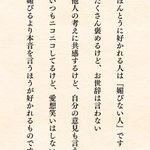 ほんとうに好かれる人は「媚びない人」です
たくさん褒めるけど、お世辞は言わない
他人の考えに共感するけど、自分の意見も言う
いつもニコニコしてるけど、愛想笑いはしない
媚びるより本音を言うほうが好かれるものです